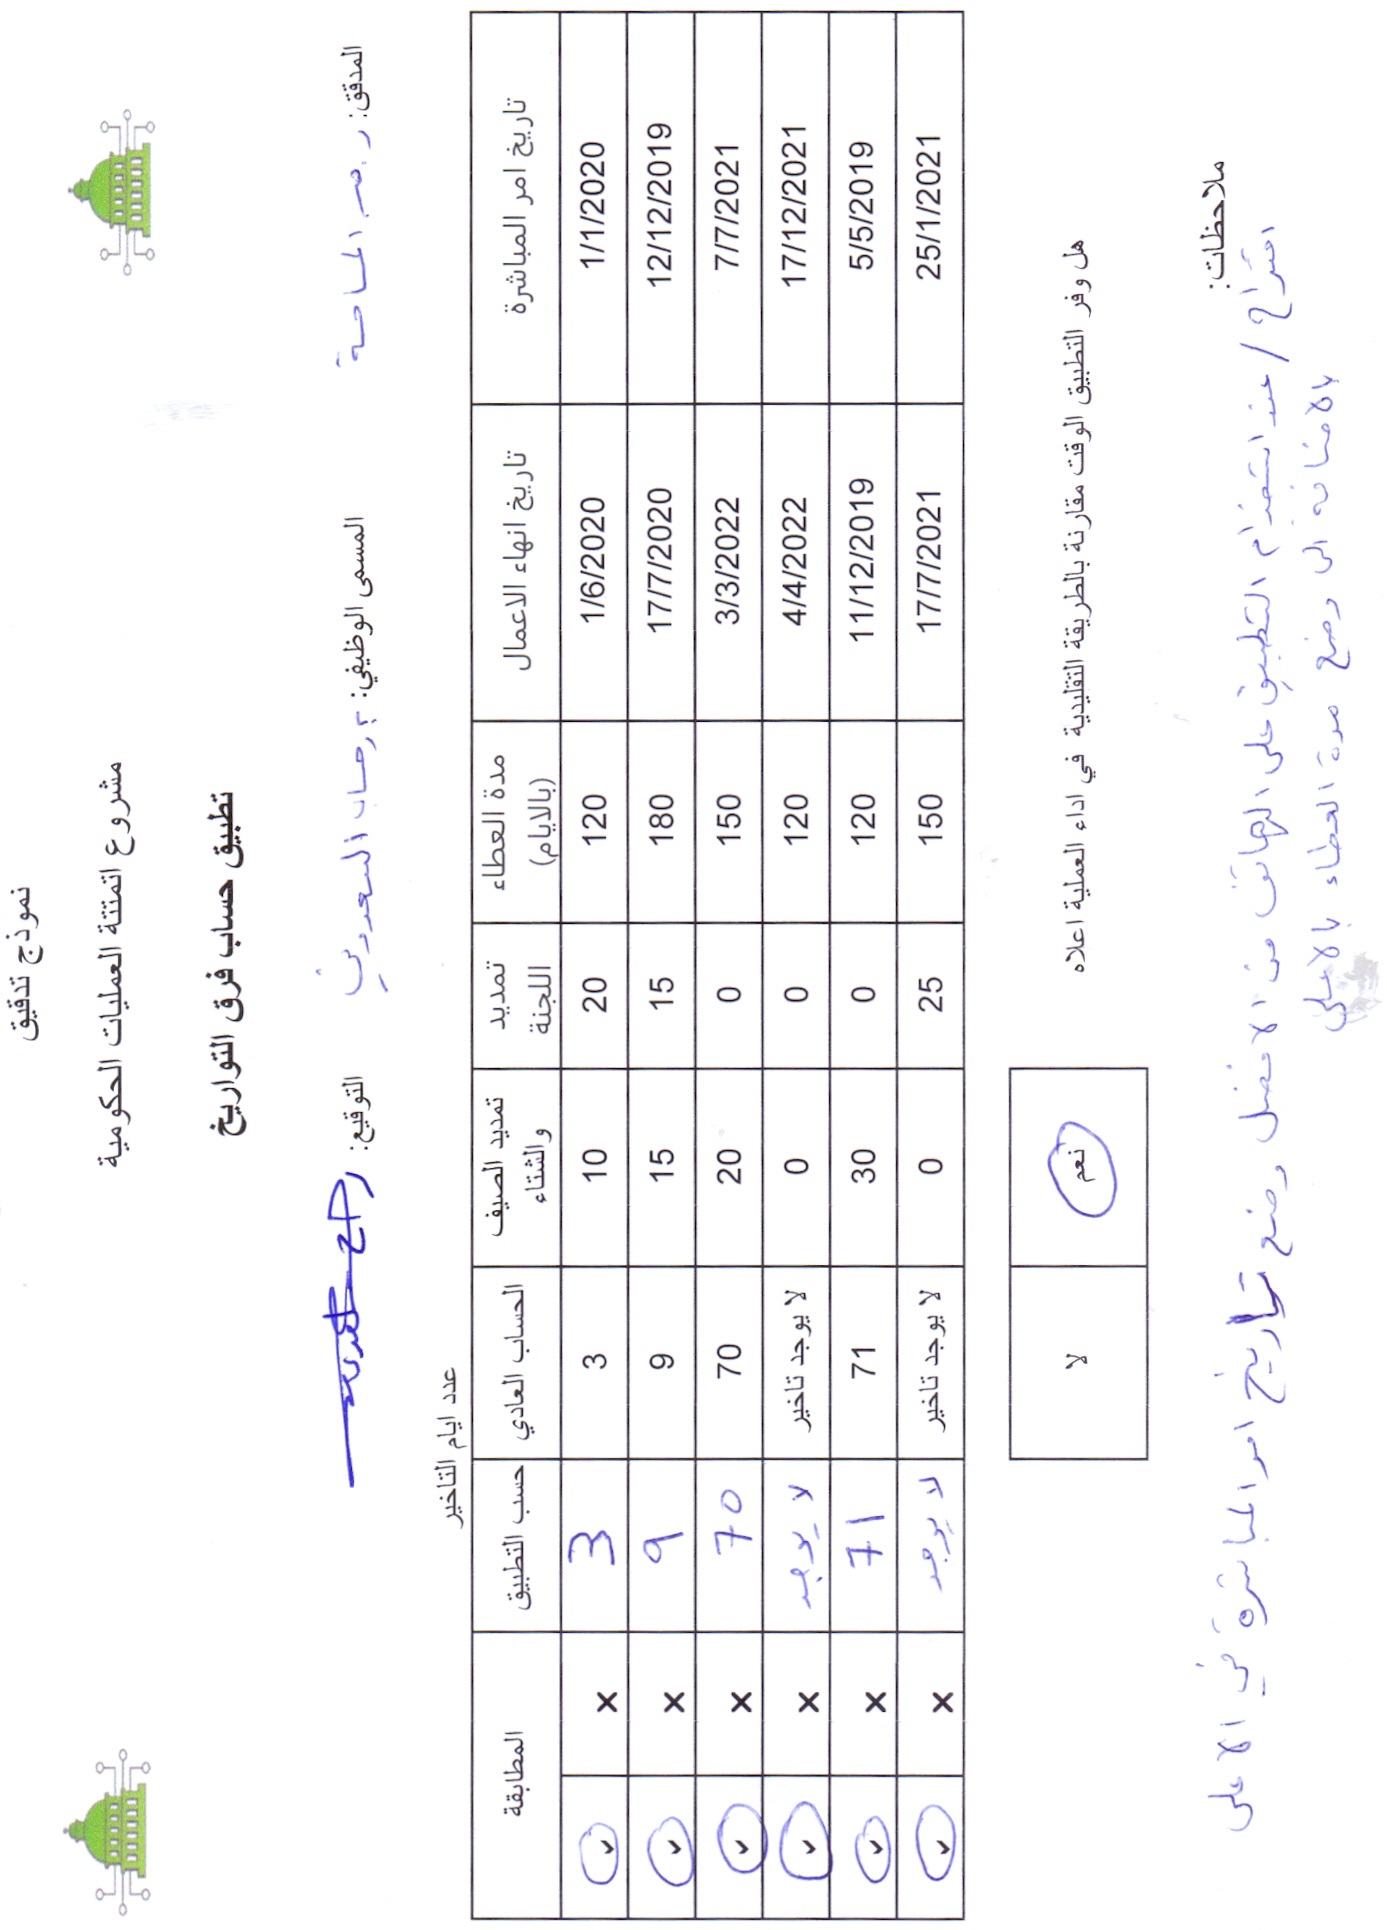 نموذج تدقيق
مشروع اتمتتة العمليات الحكومية
تطبيق حساب فرق التواريخ
المدقق: ر.مـ. المساحة
المسمى الوظيفي: رحاب السعدون
التوقيع:
عدد ايام التاخير
تاريخ امر المباشرة | تاريخ انهاء الاعمال | مدة العطاء (بالايام) | تمديد اللجنة | تمديد الصيف والشتاء | الحساب العادي | حسب التطبيق | المطابقة
1/1/2020 | 1/6/2020 | 120 | 20 | 10 | 3 | 3 | × ✓
12/12/2019 | 17/7/2020 | 180 | 15 | 15 | 9 | 9 | × ✓
7/7/2021 | 3/3/2022 | 150 | 0 | 20 | 70 | 70 | × ✓
17/12/2021 | 4/4/2022 | 120 | 0 | 0 | لا يوجد تاخير | لا يوجد | × ✓
5/5/2019 | 11/12/2019 | 120 | 0 | 30 | 71 | 71 | × ✓
25/1/2021 | 17/7/2021 | 150 | 25 | 0 | لا يوجد تاخير | لا يوجد | × ✓
هل وفر التطبيق الوقت مقارنة بالطريقة التقليدية في اداء العملية اعلاه
نعم
لا
ملاحظات:
اقتراح / عند استخدام التطبيق على الهاتف من الافضل وضع تاريخ امر المباشرة في الاعلى
بالاضافة الى وضع مدة العطاء بالاعلى